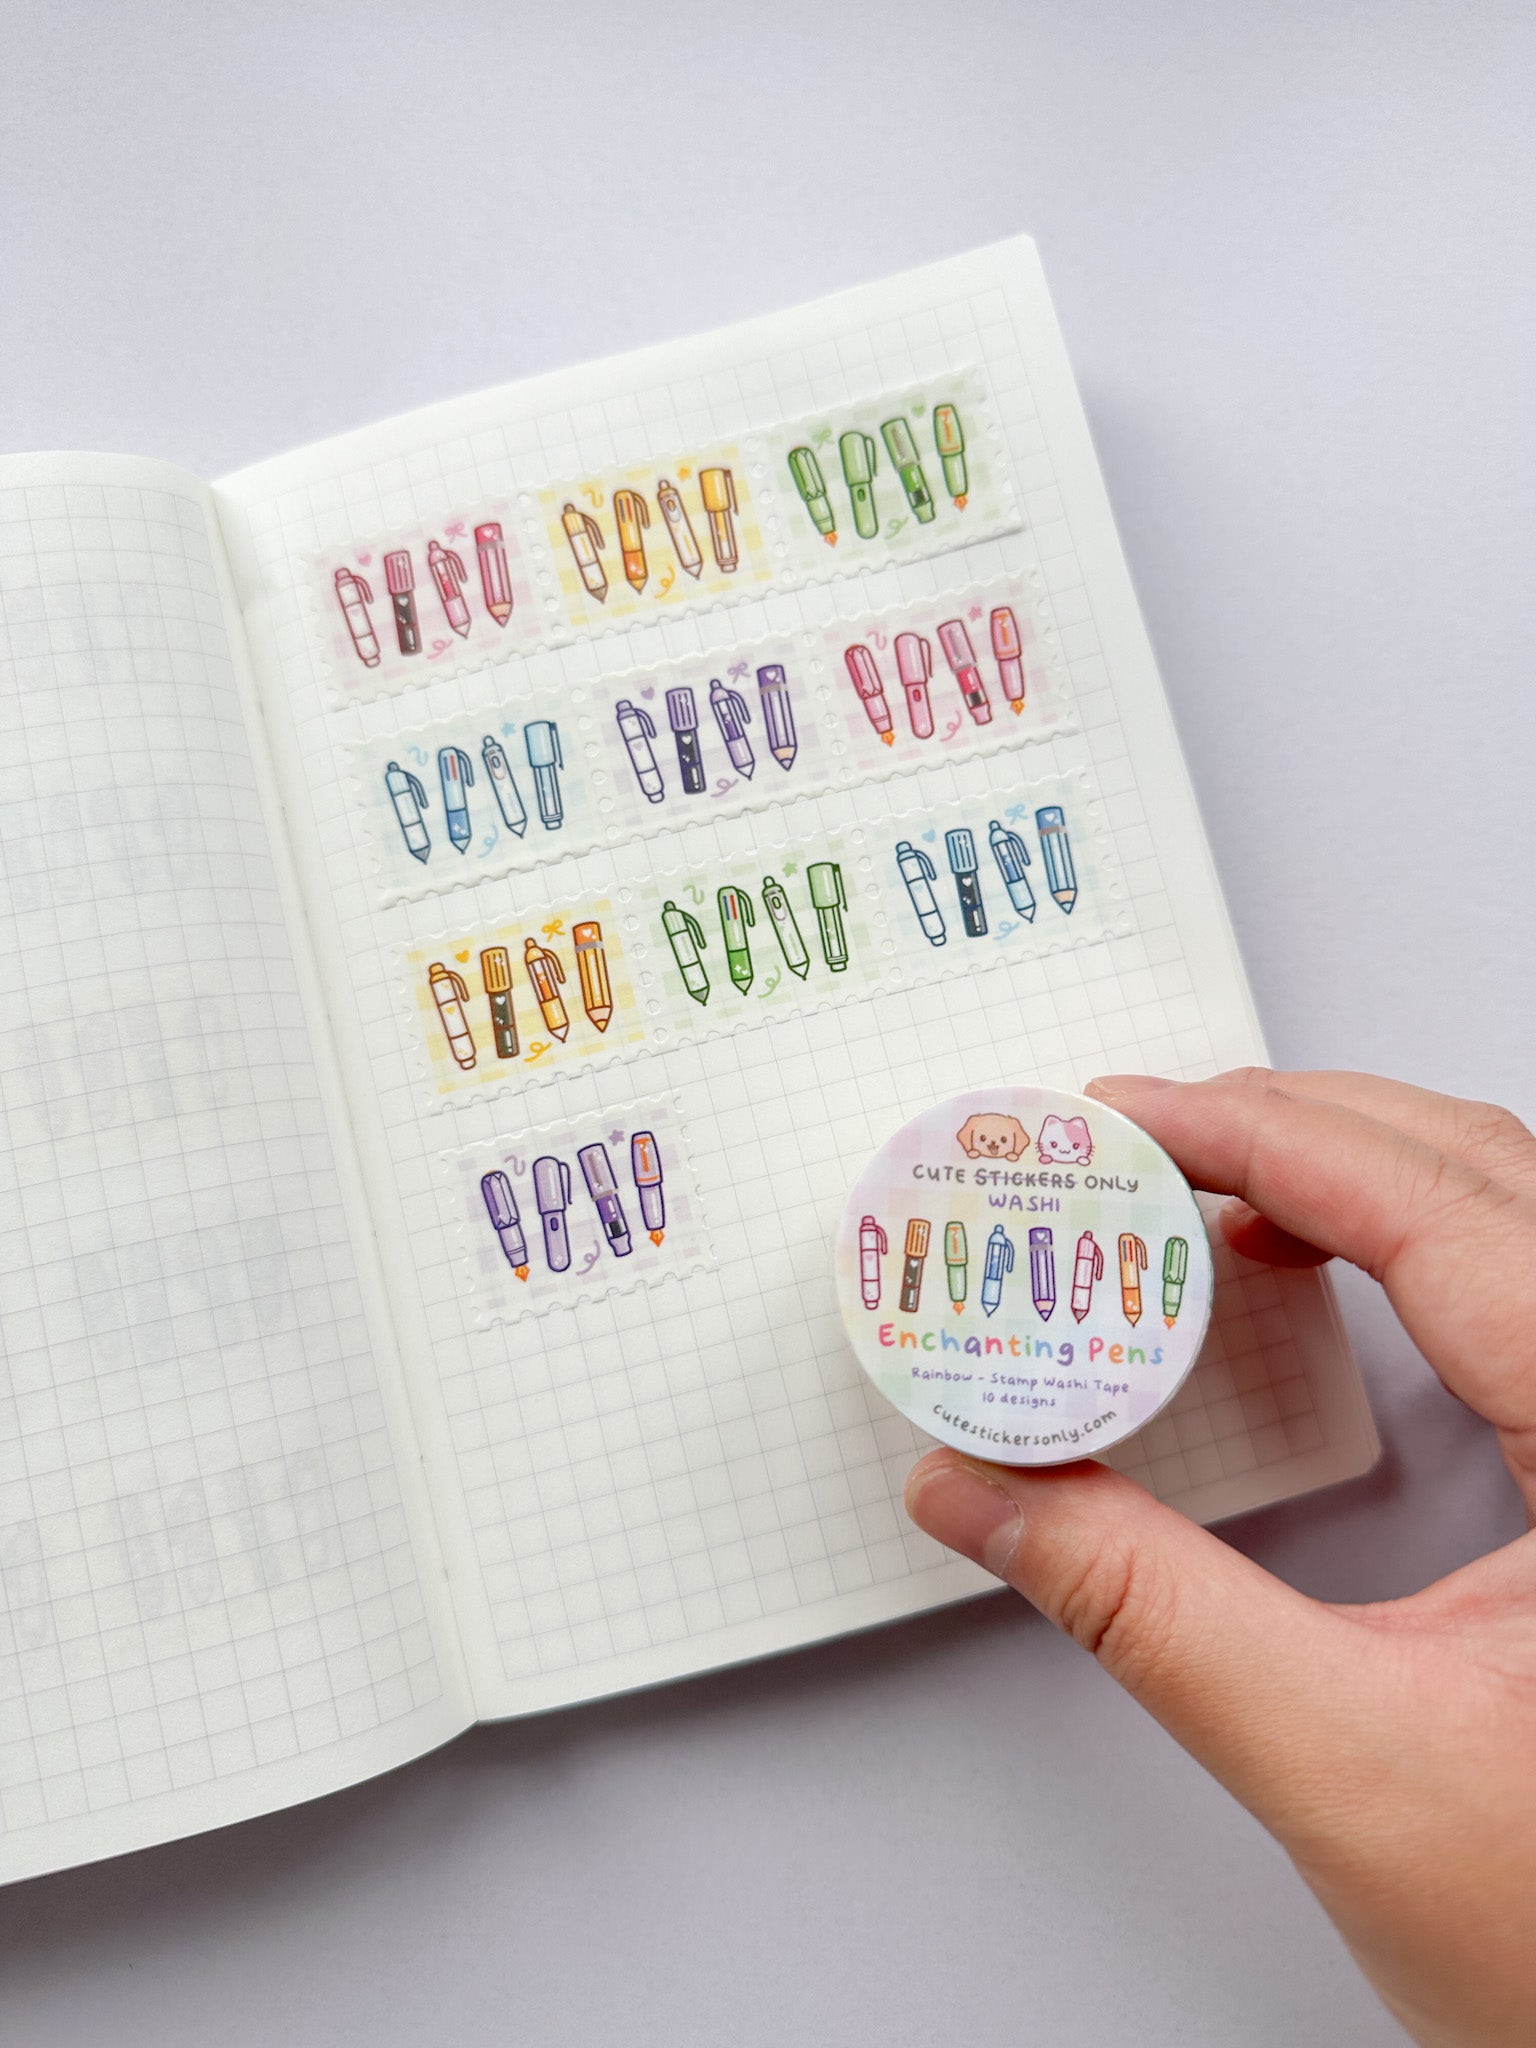 CUTE STICKERS ONLY
WASHI
Enchanting Pens
Rainbow - Stamp Washi Tape
10 designs
cutestickersonly.com